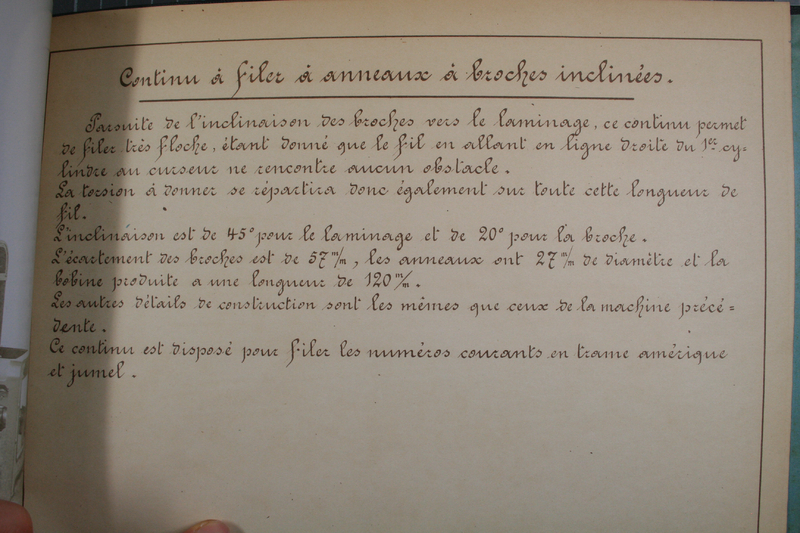 Continu à filer à anneaux à broches inclinées.
Parsuite de l'inclinaison des broches vers le laminage, ce continu permet
de filer très floche, étant donné que le fil en allant en ligne droite du 1er cy=
lindre au curseur ne rencontre aucun obstacle.
La torsion à donner se répartira donc également sur toute cette longueur de
fil.
L'inclinaison est de 45° pour le laminage et de 20° pour la broche.
L'écartement des broches est de 57 m/m, les anneaux ont 27 m/m de diamètre et la
bobine produite a une longueur de 120 m/m.
Les autres détails de construction sont les mêmes que ceux de la machine précé=
dente.
Ce continu est disposé pour filer les numéros courants en trame amérique
et jumel.